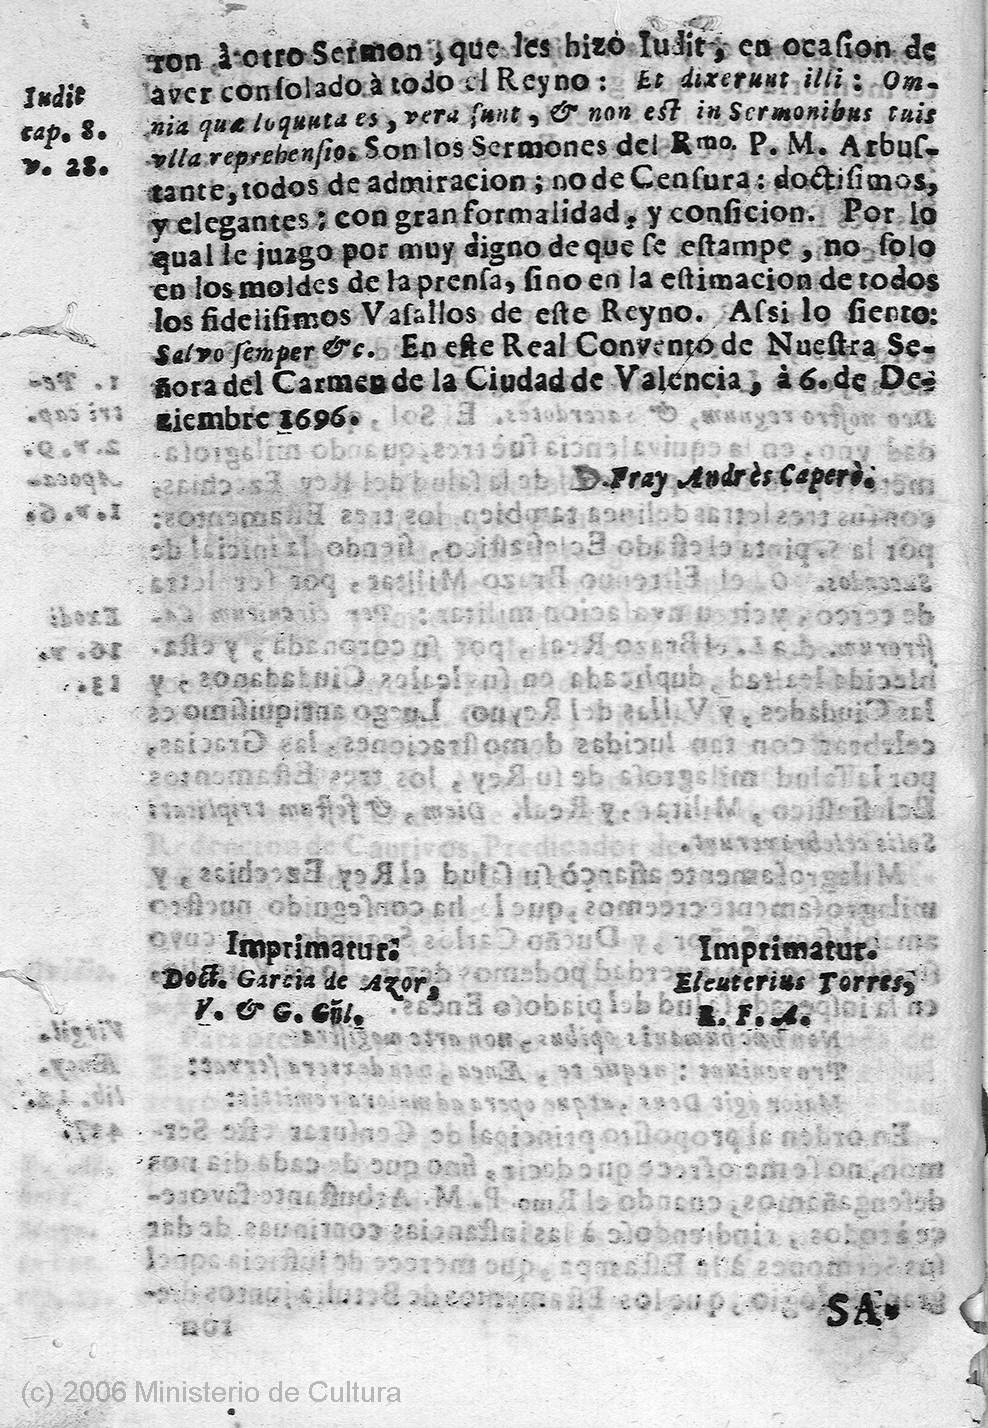 ron à otro Sermon, que les hizo Iudit, en ocasion de
aver conſolado à todo el Reyno: Et dixerunt illi: Om-
nia quæ loquuta es, vera ſunt, & non est in Sermonibus tuis
vlla reprehenſio. Son los Sermones del Rmo. P. M. Arbuſ-
tante, todos de admiracion; no de Cenſura: doctiſimos,
y elegantes; con gran formalidad, y conſicion. Por lo
qual le juzgo por muy digno de que ſe eſtampe, no ſolo
en los moldes de la prenſa, ſino en la eſtimacion de todos
los fideliſimos Vaſallos de eſte Reyno. Aſsi lo ſiento:
Salvo ſemper &c. En eſte Real Convento de Nueſtra Se-
ñora del Carmen de la Ciudad de Valencia, à 6. de De-
ziembre 1696.
Iudit
cap. 8.
v. 28.
D. Fray Andrès Caperò.
Imprimatur.
Doct. Garcia de Azor,
V. & G. Gñl.
Imprimatur.
Eleuterius Torres,
R. F. A.
SA-
(c) 2006 Ministerio de Cultura